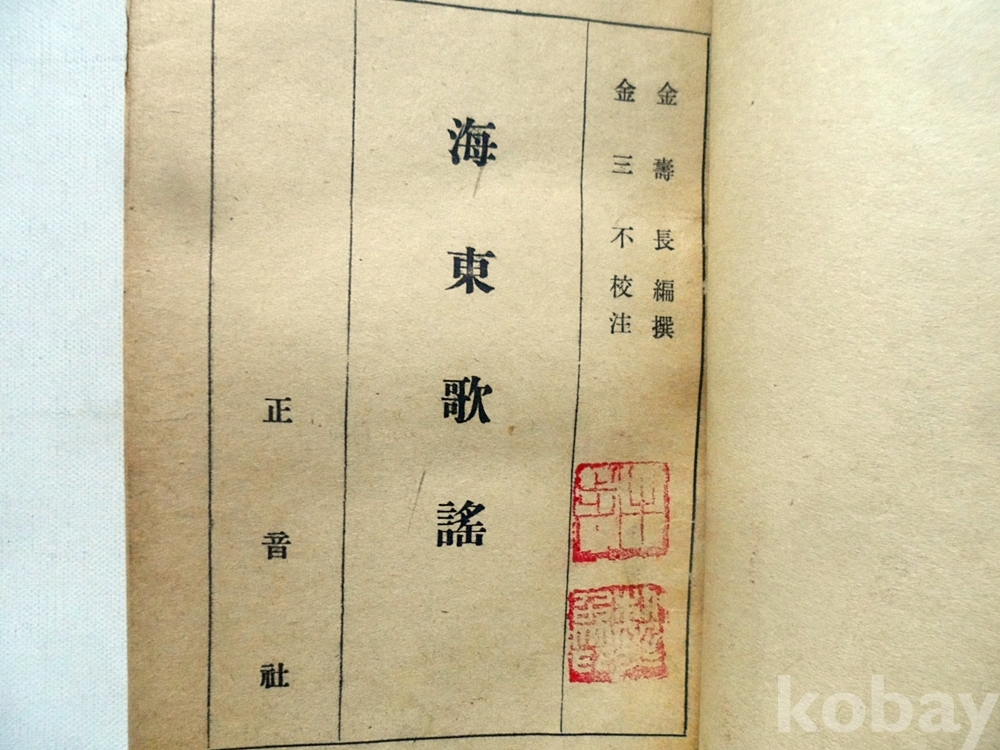 金壽長編撰
金三不校注
海東歌謠
正音社
kobay